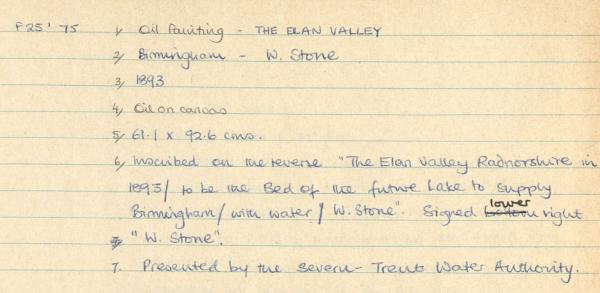 F25' 75 1, Oil Painting - THE ELAN VALLEY
2, Birmingham - W. Stone
3, 1893
4, Oil on canvas
5, 61.1 x 92.6 cms.
6, Inscribed on the reverse "The Elan Valley Radnorshire in
1893/ to be the Bed of the future Lake to supply
Birmingham/ with water/ W. Stone". Signed bottom lower right
7, "W. Stone".
7. Presented by the Severn-Trent Water Authority.